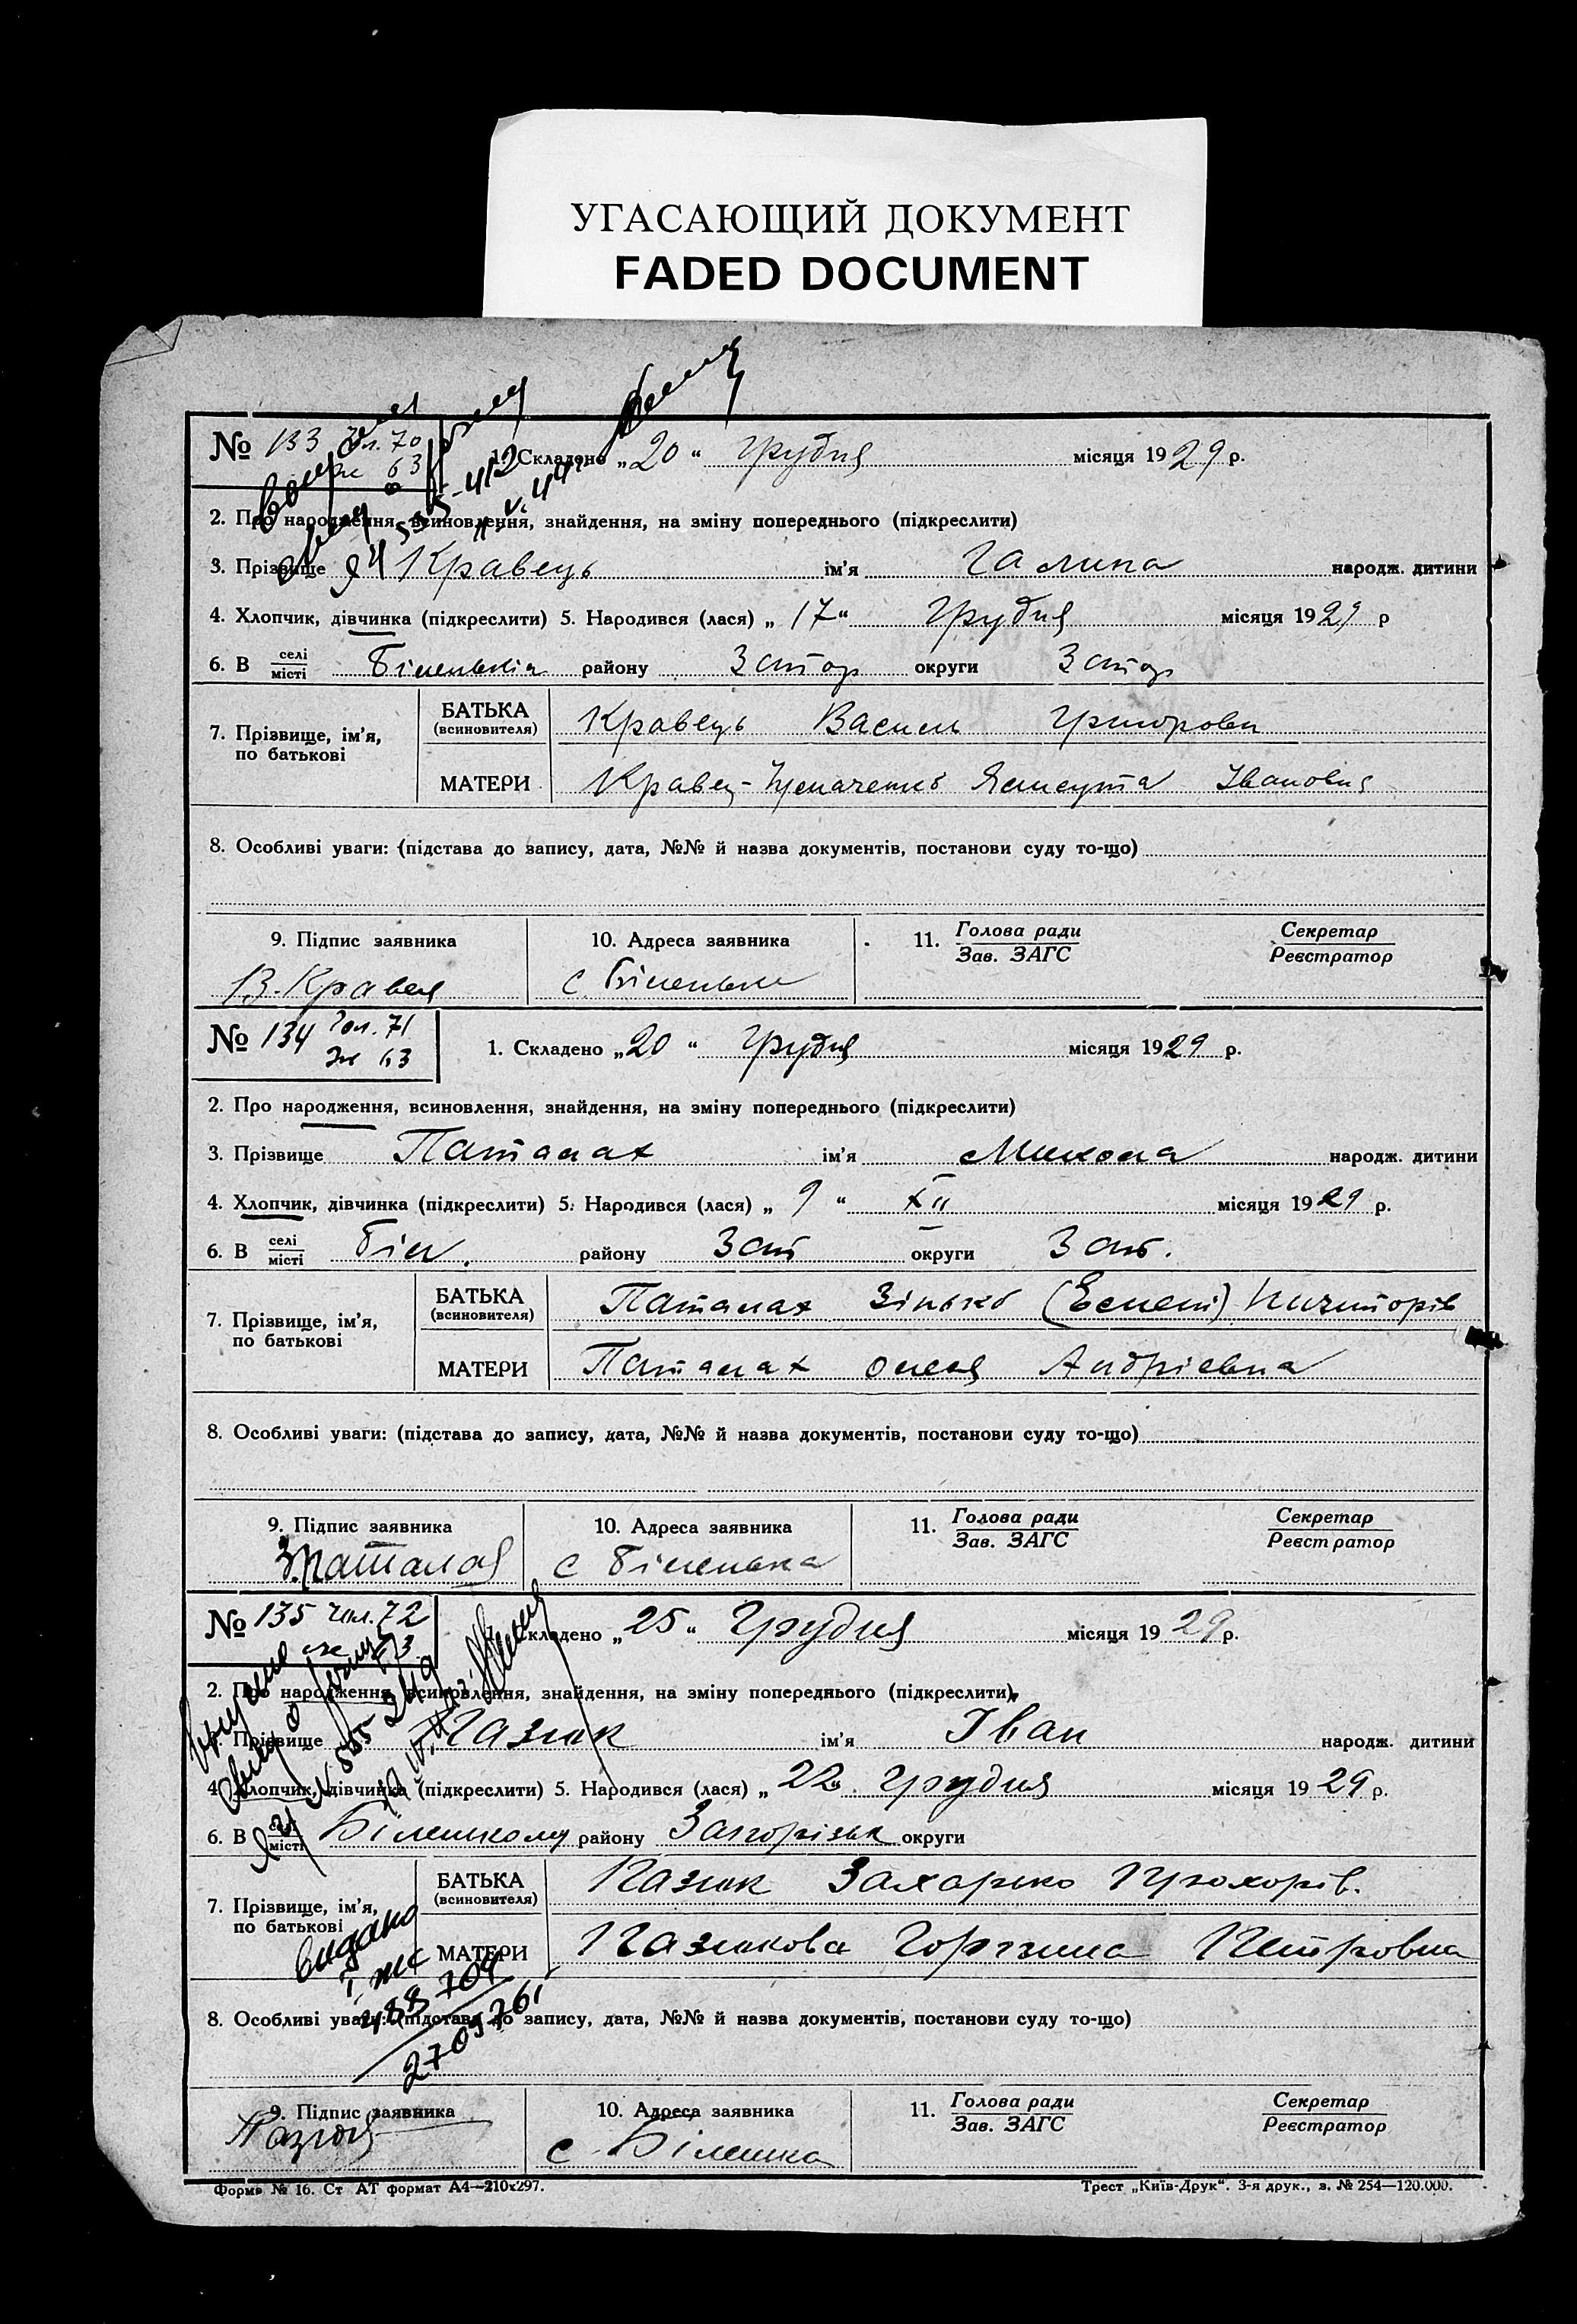 УГАСАЮЩИЙ ДОКУМЕНТ
FADED DOCUMENT
№ 133 Чол. 70
Жи 63
1. Складено „20“ Грудня місяця 1929 р.
2. Про народження, всиновлення, знайдення, на зміну попереднього (підкреслити)
3. Прізвище Кравець ім'я Галина народж. дитини
4. Хлопчик, дівчинка (підкреслити) 5. Народився (лася) „17“ Грудня місяця 1929 р
6. В селі/місті Біленькіа району Запор округи Запор
7. Прізвище, ім'я, по батькові
БАТЬКА (всиновителя) Кравець Василь Григорови
МАТЕРИ Кравец- Івановна
8. Особливі уваги: (підстава до запису, дата, №№ й назва документів, постанови суду то-що)
9. Підпис заявника
10. Адреса заявника
11. Голова ради/Зав. ЗАГС
Секретар/Реєстратор
В. Кравец с. Біленьке
№ 134 Чол. 71
Жи 63
1. Складено „20“ Грудня місяця 1929 р.
2. Про народження, всиновлення, знайдення, на зміну попереднього (підкреслити)
3. Прізвище Паталах ім'я Микола народж. дитини
4. Хлопчик, дівчинка (підкреслити) 5. Народився (лася) „9“ XII місяця 1929 р.
6. В селі/місті Біл. району Зап округи Зап.
7. Прізвище, ім'я, по батькові
БАТЬКА (всиновителя) Паталах Зінько Ничипорів
МАТЕРИ Паталах Олена Андріевна
8. Особливі уваги: (підстава до запису, дата, №№ й назва документів, постанови суду то-що)
9. Підпис заявника
10. Адреса заявника
11. Голова ради/Зав. ЗАГС
Секретар/Реєстратор
З. Паталах с Біленька
№ 135 Чол. 72
Же 63
1. Складено „25“ Грудня місяця 1929 р.
2. Про народження, всиновлення, знайдення, на зміну попереднього (підкреслити)
3. Прізвище Пазюк ім'я Іван народж. дитини
4. Хлопчик, дівчинка (підкреслити) 5. Народився (лася) „22“ Грудня місяця 1929 р.
6. В селі/місті Біленькому району Запорізьк округи
7. Прізвище, ім'я, по батькові
БАТЬКА (всиновителя) Пазюк Захарко Прохорів.
МАТЕРИ Пазюкова Горпина Петровна
видано
488704
270976г
8. Особливі уваги: (підстава до запису, дата, №№ й назва документів, постанови суду то-що)
9. Підпис заявника
10. Адреса заявника
11. Голова ради/Зав. ЗАГС
Секретар/Реєстратор
Пазюк с Біленка
Форма № 16. Ст АТ формат А4—210х297.
Трест „Київ-Друк“. 3-я друк., з. № 254—120.000.